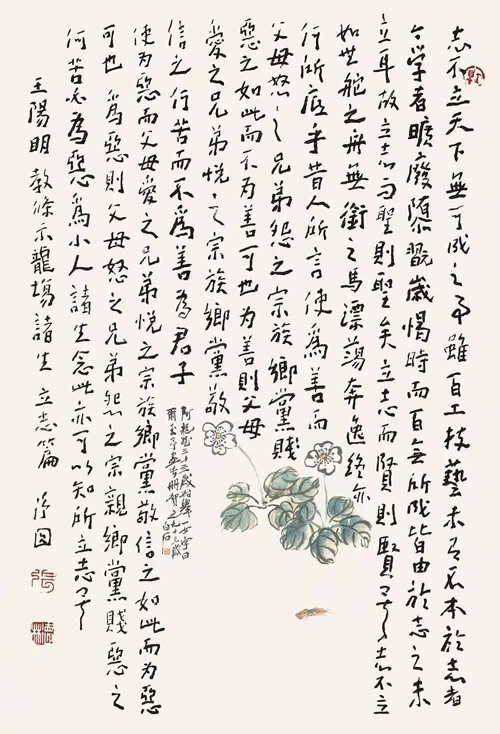 志不立天下無可成之事雖百工技藝未有不本於志者
今學者曠廢隳翫歲愒時而百無所成皆由於志之未
立耳故立志而聖則聖矣立志而賢則賢矣志不立
如無舵之舟無銜之馬漂蕩奔逸終亦
何所底乎昔人所言使為善而
父母怒之兄弟怨之宗族鄉黨賤
惡之如此而不为善可也为善則父母
愛之兄弟悅之宗族鄉黨敬
信之何苦而不為善為君子
使為惡而父母愛之兄弟悅之宗族鄉黨敬信之如此而为惡
可也為惡則父母怒之兄弟怨之宗親鄉黨賤惡之
何苦必為惡為小人諸生念此亦可以知所立志矣
王陽明教條示龍場諸生立志篇
九十三歲白石